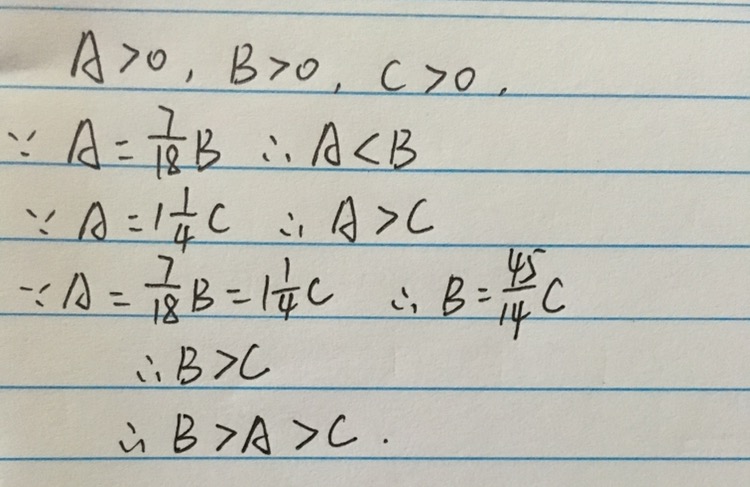 A>0, B>0, C>0,
∵ A=7/18 B ∴ A<B
∵ A=1 1/4 C ∴ A>C
∵ A=7/18 B=1 1/4 C ∴ B=45/14 C
∴ B>C
∴ B>A>C.